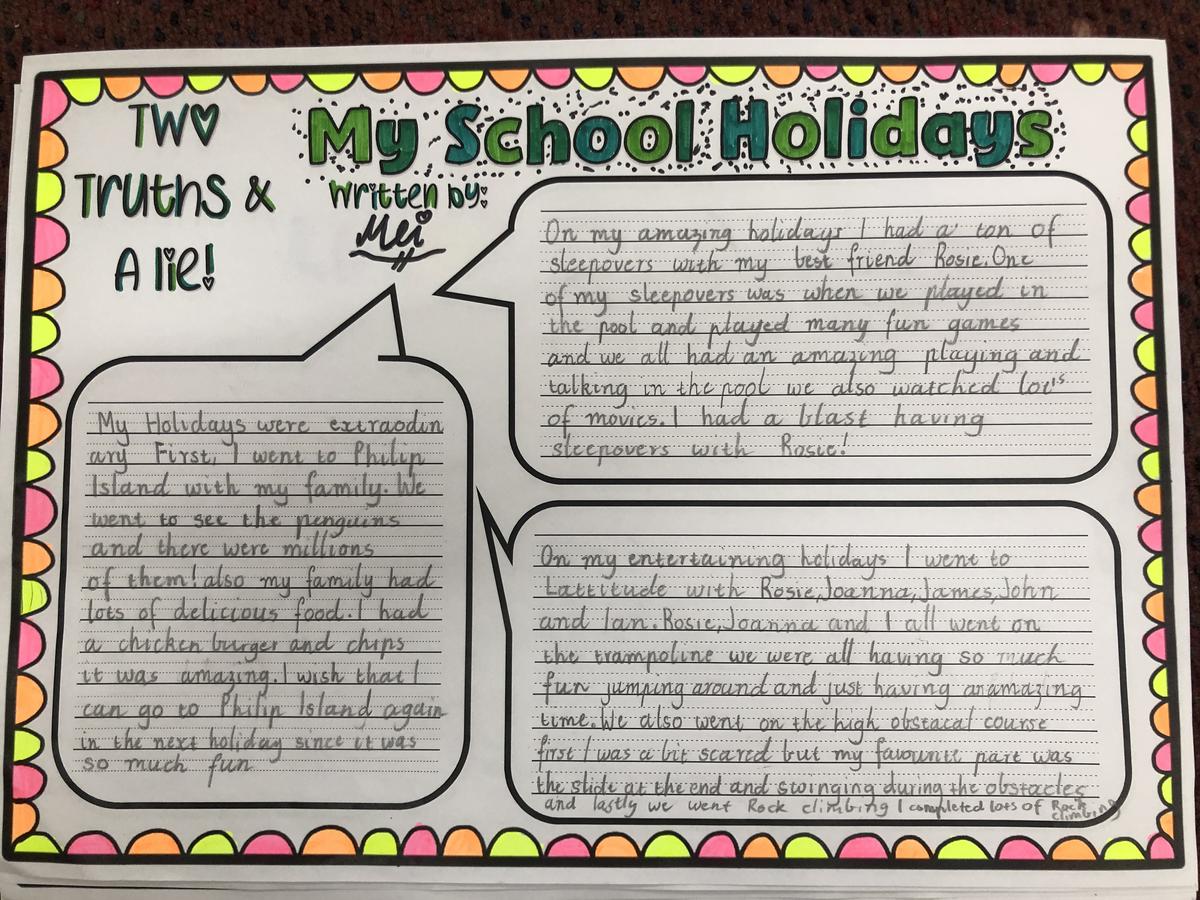 TWO
Truths &
A lie!
My School Holidays
Written by:
Mei
On my amazing holidays I had a ton of
sleepovers with my best friend Rosie. One
of my sleepovers was when we played in
the pool and played many fun games
and we all had an amazing playing and
talking in the pool we also watched lots
of movies. I had a blast having
sleepovers with Rosie!
My Holidays were extraodin
ary First, I went to Philip
Island with my family. We
went to see the penguins
and there were millions
of them! also my family had
lots of delicious food. I had
a chicken burger and chips
it was amazing. I wish that I
can go to Philip Island again
in the next holiday since it was
so much fun
On my entertaining holidays I went to
Lattitude with Rosie, Joanna, James, John
and Ian. Rosie, Joanna and I all went on
the trampoline we were all having so much
fun jumping around and just having an amazing
time. We also went on the high obstacal course
first I was a bit scared but my favourite part was
the slide at the end and swinging during the obstacles
and lastly we went Rock climbing I completed lots of Rock
climbing